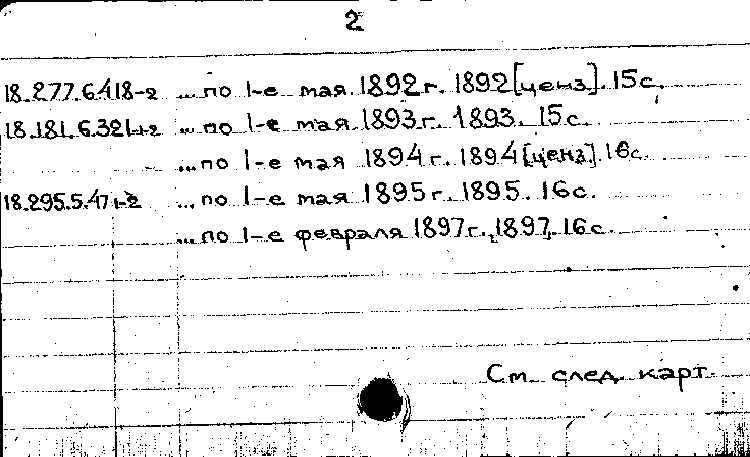 2
18.277.6.418-2 ...по 1-е мая 1892 г. 1892 [ценз]. 15 с.
18.181.6.321-2 ...по 1-е мая 1893 г. 1893. 15 с.
...по 1-е мая 1894 г. 1894 [ценз]. 16 с.
18.295.5.47 1-2 ...по 1-е мая 1895 г. 1895. 16 с.
...по 1-е февраля 1897 г. 1897. 16 с.
См. след. карт.